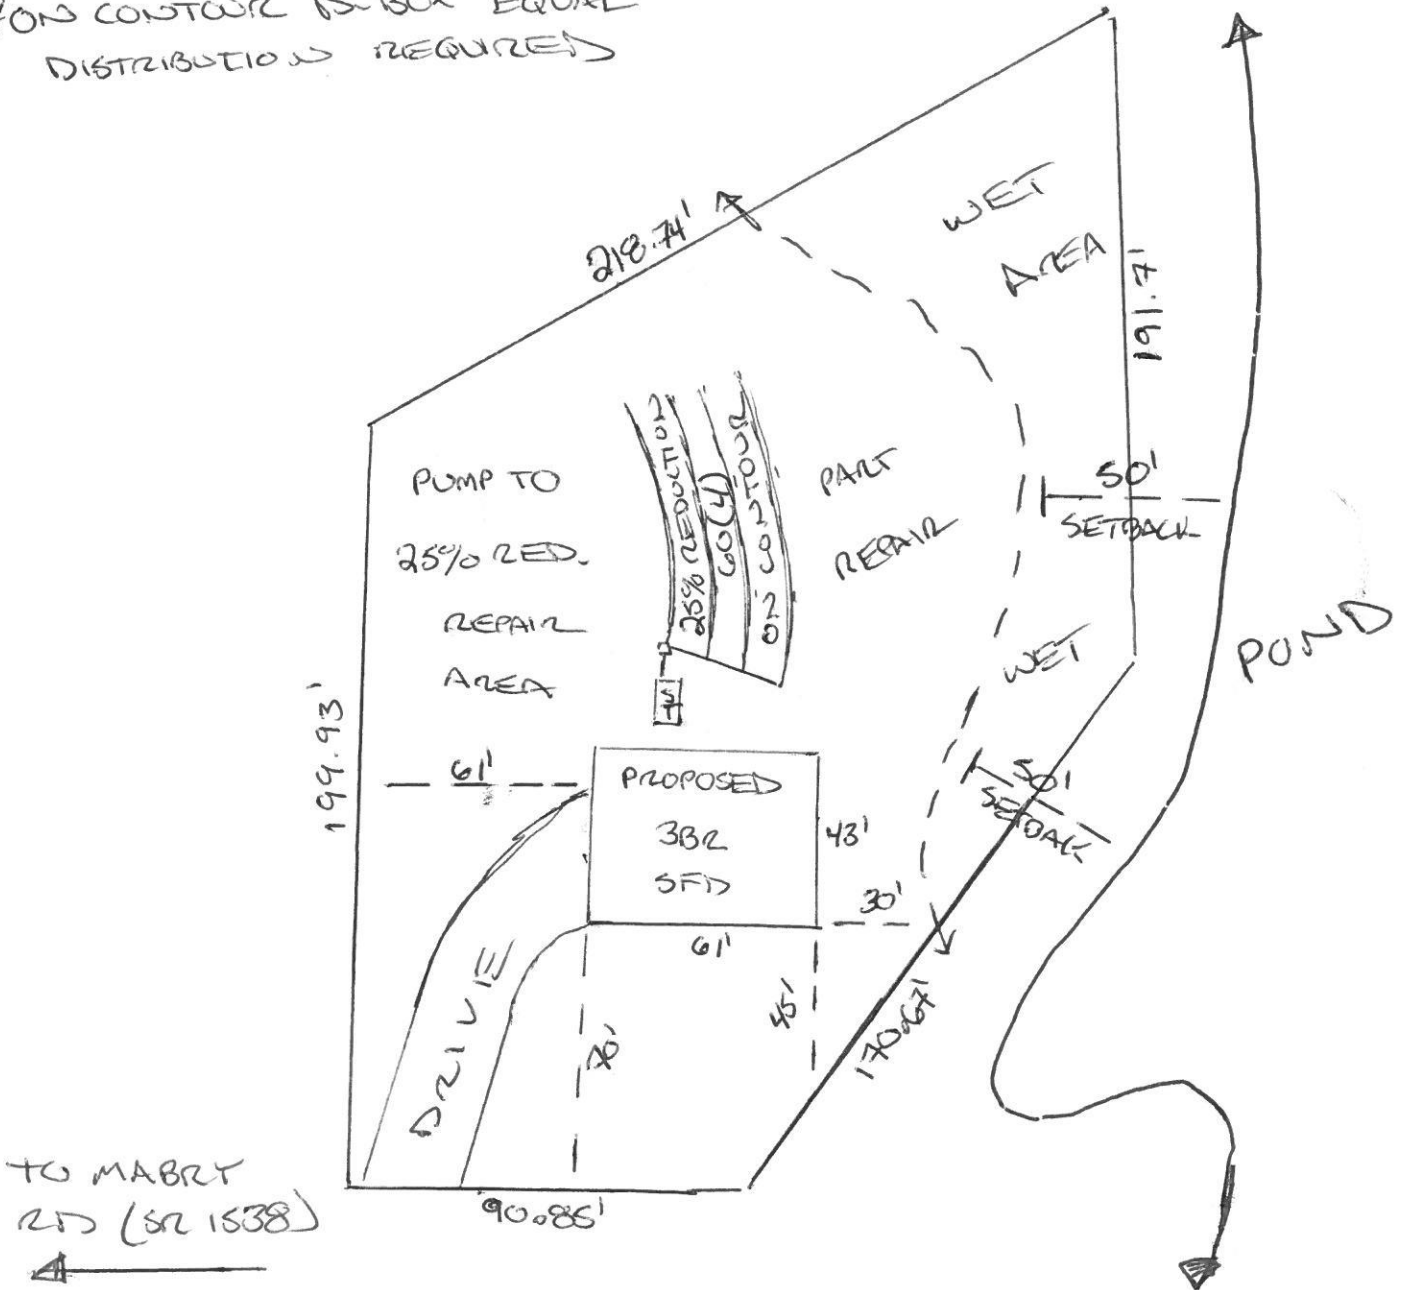 ON CONTOUR D-BOX EQUAL
DISTRIBUTION REQUIRED
WET
AREA
218.74'
191.7'
PUMP TO
25% RED.
REPAIR
AREA
25% REDUCTION
60(4)
20" CONTOUR
PART
REPAIR
50'
SETBACK
POND
WET
ST
199.93'
61'
PROPOSED
3BR
SFD
43'
50'
SETBACK
30'
61'
45'
70'
170.67'
DRIVE
TO MABRY
RD (SR 1538)
90.85'